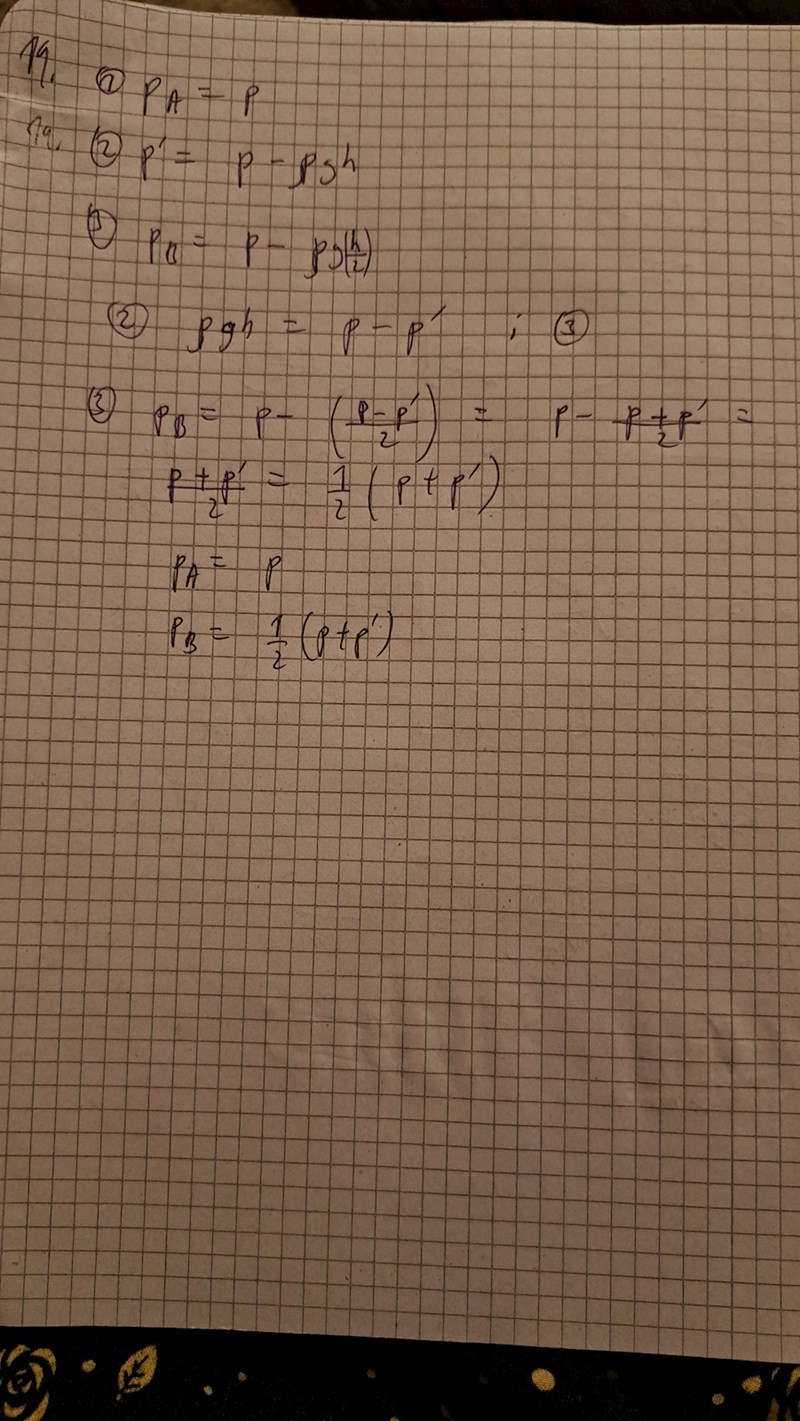 19. ① pA = p
19. ② p' = p - ρgh
pB = p - ρg(h/2)
② ρgh = p - p' ; ③
③ pB = p - ((p-p')/2) = p - (p+p')/2 =
(p+p')/2 = 1/2 (p+p')
pA = p
pB = 1/2 (p+p')